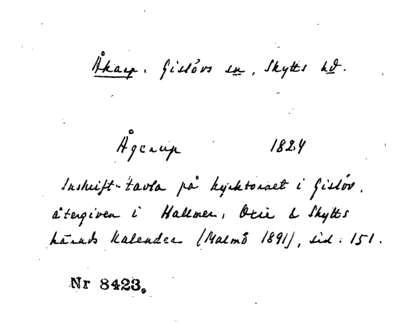 Åkarp. Gislövs sn, Skytts hd.
Ågerup 1824
Inskrift-tavla på kyrktornet i Gislöv,
återgiven i Hallmer, Oxie & Skytts
härads Kalender (Malmö 1891), sid. 151.
Nr 8423.